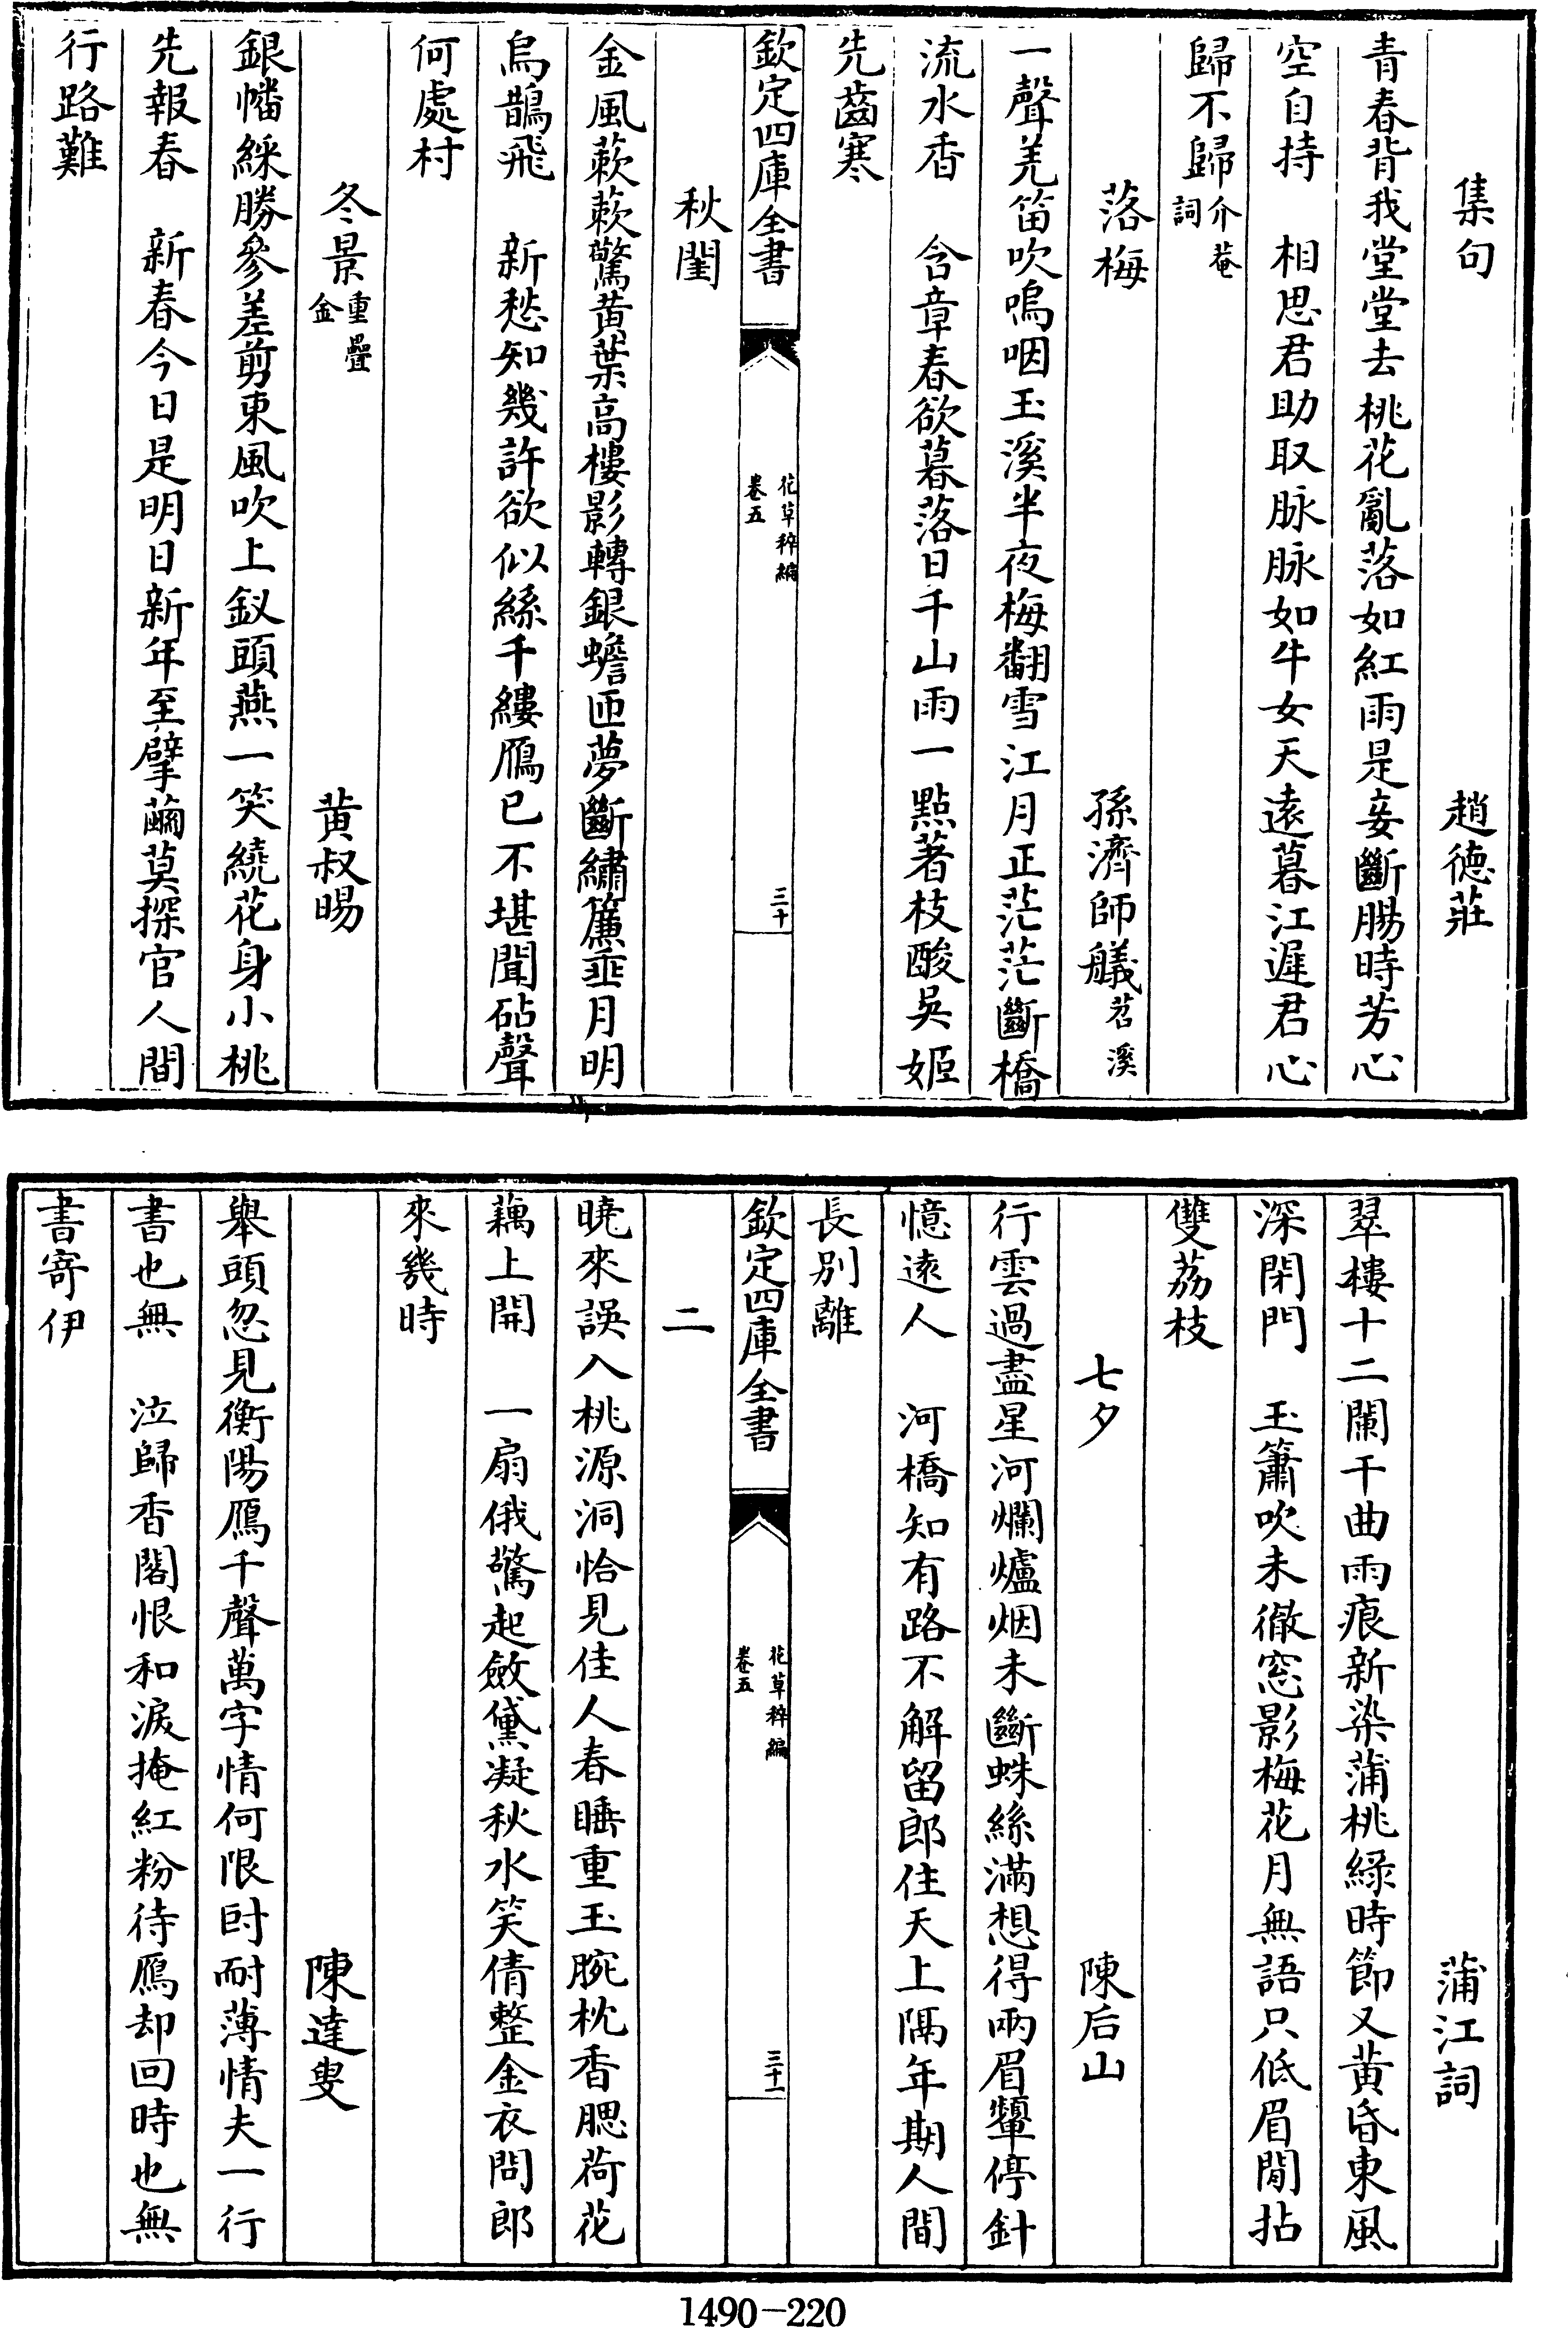 集句　趙德莊
青春背我堂堂去桃花亂落如紅雨是妾斷腸時芳心
空自持　相思君助取脉脉如牛女天遠暮江遲君心
歸不歸介菴詞
落梅　孫濟師艤苕溪
一聲羌笛吹嗚咽玉溪半夜梅翻雪江月正茫茫斷橋
流水香　含章春欲暮落日千山雨一點著枝酸吳姬
先齒寒
欽定四庫全書　花草稡編卷五　三十
秋閨
金風蔌蔌驚黃葉高樓影轉銀蟾匝夢斷繡簾垂月明
烏鵲飛　新愁知幾許欲似絲千縷鴈已不堪聞砧聲
何處村
冬景重疊金　黃叔暘
銀幡綵勝參差剪東風吹上釵頭燕一笑繞花身小桃
先報春　新春今日是明日新年至擘繭莫探官人間
行路難
蒲江詞
翠樓十二闌干曲雨痕新染蒲桃綠時節又黃昏東風
深閉門　玉簫吹未徹窓影梅花月無語只低眉閒拈
雙荔枝
七夕　陳后山
行雲過盡星河爛爐烟未斷蛛絲滿想得兩眉顰停針
憶遠人　河橋知有路不解留郎住天上隔年期人間
長別離
欽定四庫全書　花草稡編卷五　三十一
二
曉來誤入桃源洞恰見佳人春睡重玉腕枕香腮荷花
藕上開　一扇俄驚起斂黛凝秋水笑倩整金衣問郎
來幾時
陳達叟
舉頭忽見衡陽鴈千聲萬字情何限叵耐薄情夫一行
書也無　泣歸香閣恨和淚掩紅粉待鴈却回時也無
書寄伊
1490-220